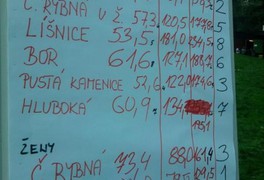 Č. RYBNÁ U Ž. 57,3 120,5 2
LÍŠNICE 53,5 181,0 234,5 8
BOR 61,6 127,1 188,7 6
PUSTÁ KAMENICE 52,6 122,0 174,6 3
HLUBOKÁ 60,9 134 7
195,1
ŽENY
Č. RYBNÁ 73,4 88,0 161,4 3
1